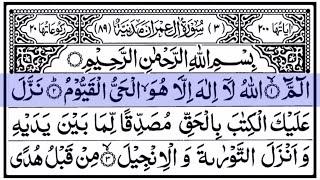 اٰیاتها ٢٠٠ (٣) سُوْرَةُ اٰلِ عِمْرٰنَ مَدَنِيَّةٌ (٨٩) رکوعاتها ٢٠
بِسْمِ اللهِ الرَّحْمٰنِ الرَّحِيْمِ
الٓمّٓ ۝١ اللهُ لَاۤ اِلٰهَ اِلَّا هُوَ ۙ الْحَیُّ الْقَیُّوْمُ ۝٢ نَزَّلَ
عَلَیْكَ الْكِتٰبَ بِالْحَقِّ مُصَدِّقًا لِّمَا بَیْنَ یَدَیْهِ
وَ اَنْزَلَ التَّوْرٰىةَ وَ الْاِنْجِیْلَ ۝٣ مِنْ قَبْلُ هُدًی